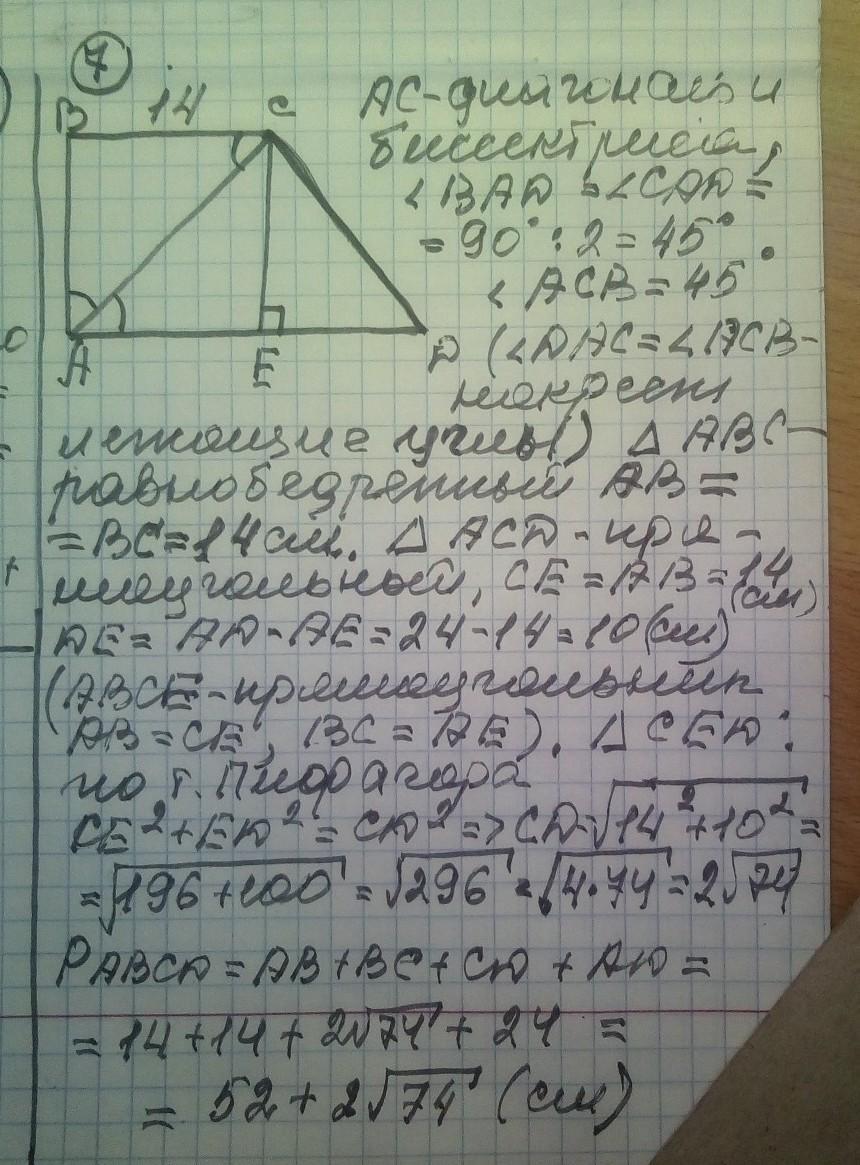 7
B 14 C
A E D
AC-диагональ и
биссектриса,
∠BAD = ∠CAD =
= 90° : 2 = 45°.
∠ACB = 45°
(∠DAC = ∠ACB -
накрест
лежащие углы) △ABC -
равнобедренный AB =
= BC = 14 см. △ACD - пря -
моугольный, CE = AB = 14
(см)
DE = AD - AE = 24 - 14 = 10 (см)
(ABCE - прямоугольник
AB = CE, BC = AE). △CED:
по т. Пифагора
CE² + ED² = CD² => CD = √14² + 10² =
= √196 + 100 = √296 = √4·74 = 2√74
PABCD = AB + BC + CD + AD =
= 14 + 14 + 2√74 + 24 =
= 52 + 2√74 (см)